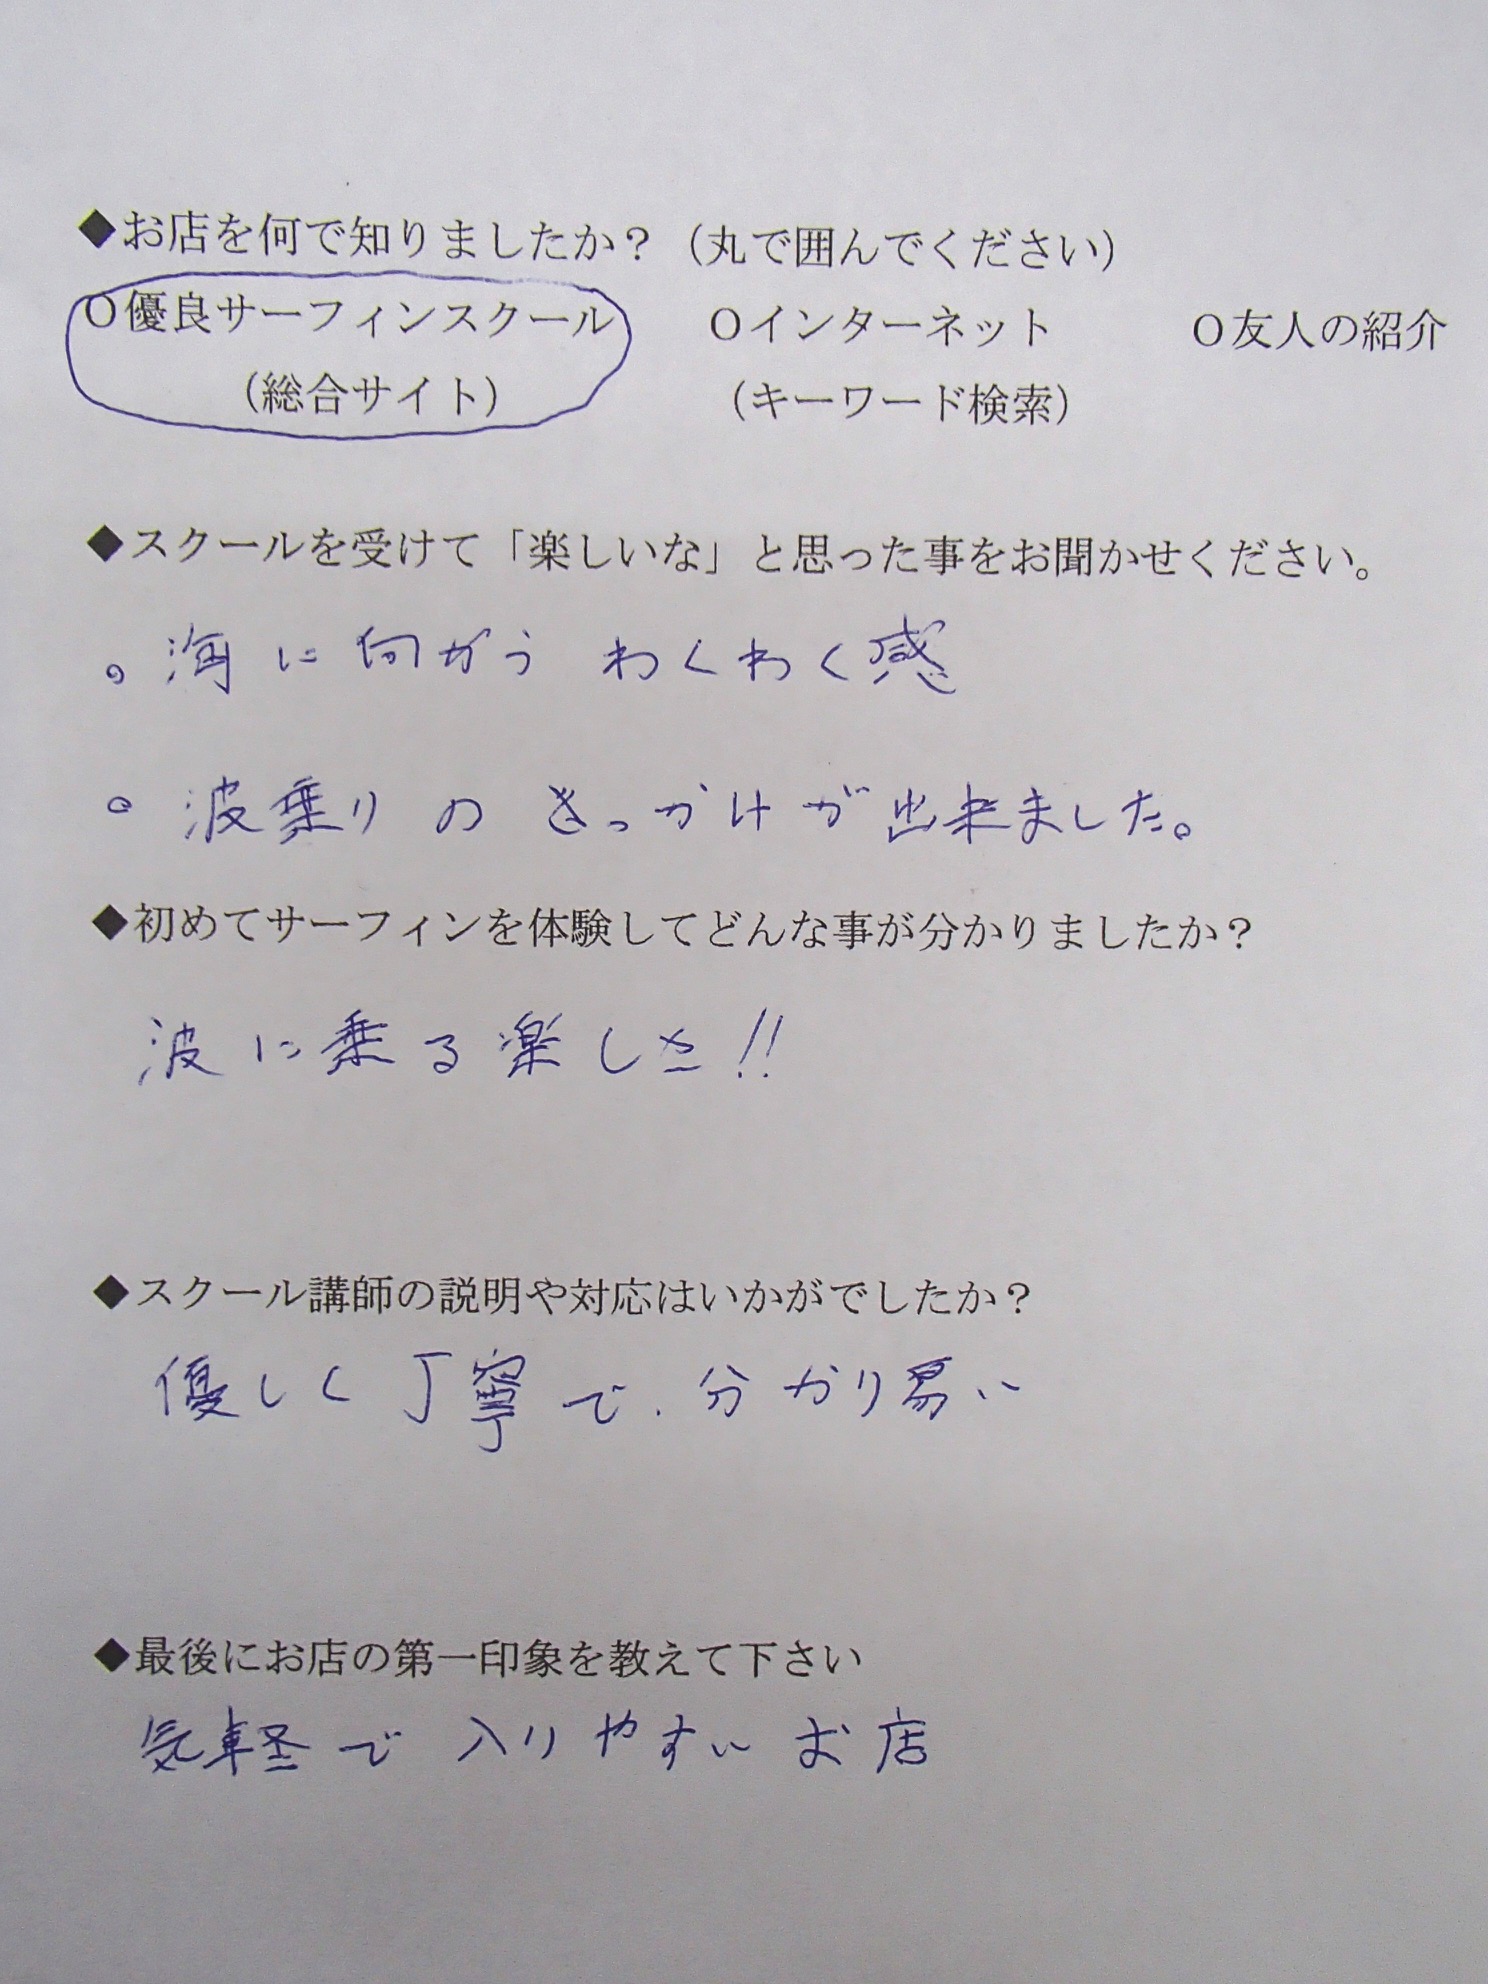 ◆お店を何で知りましたか？（丸で囲んでください）
○優良サーフィンスクール　○インターネット　○友人の紹介
（総合サイト）　（キーワード検索）
◆スクールを受けて「楽しいな」と思った事をお聞かせください。
。海に向かう わくわく感
。波乗り の きっかけが出来ました。
◆初めてサーフィンを体験してどんな事が分かりましたか？
波に乗る楽しさ!!
◆スクール講師の説明や対応はいかがでしたか？
優しく丁寧で、分かり易い
◆最後にお店の第一印象を教えて下さい
気軽で 入りやすい お店